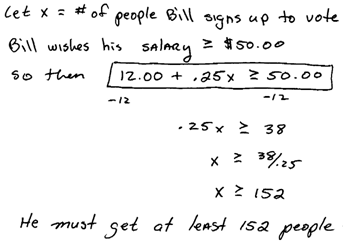 Let x = # of people Bill signs up to vote
Bill wishes his SALARY ≥ $50.00
so then 12.00 + .25x ≥ 50.00
-12 -12
.25x ≥ 38
x ≥ 38/.25
x ≥ 152
He must get at least 152 people